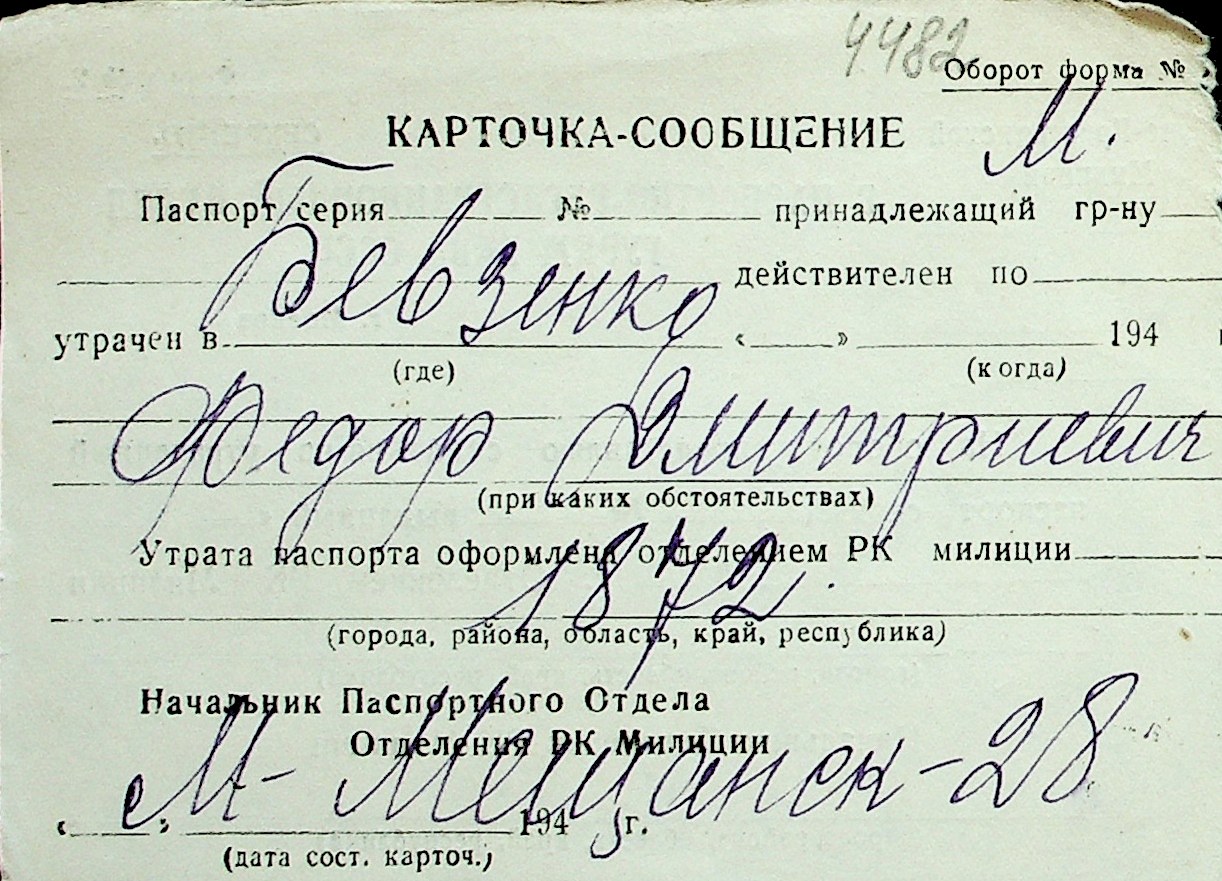 4482
Оборот форма №
КАРТОЧКА-СООБЩЕНИЕ
М.
Паспорт серия № принадлежащий гр-ну
Бевзенко
действителен по
утрачен в « » 194
(где) (когда)
Федор Дмитриевич
(при каких обстоятельствах)
Утрата паспорта оформлена отделением РК милиции
1872.
(города, района, область, край, республика)
Начальник Паспортного Отдела
Отделения РК Милиции
М-Мещанск-28
« » 194 г.
(дата сост. карточ.)